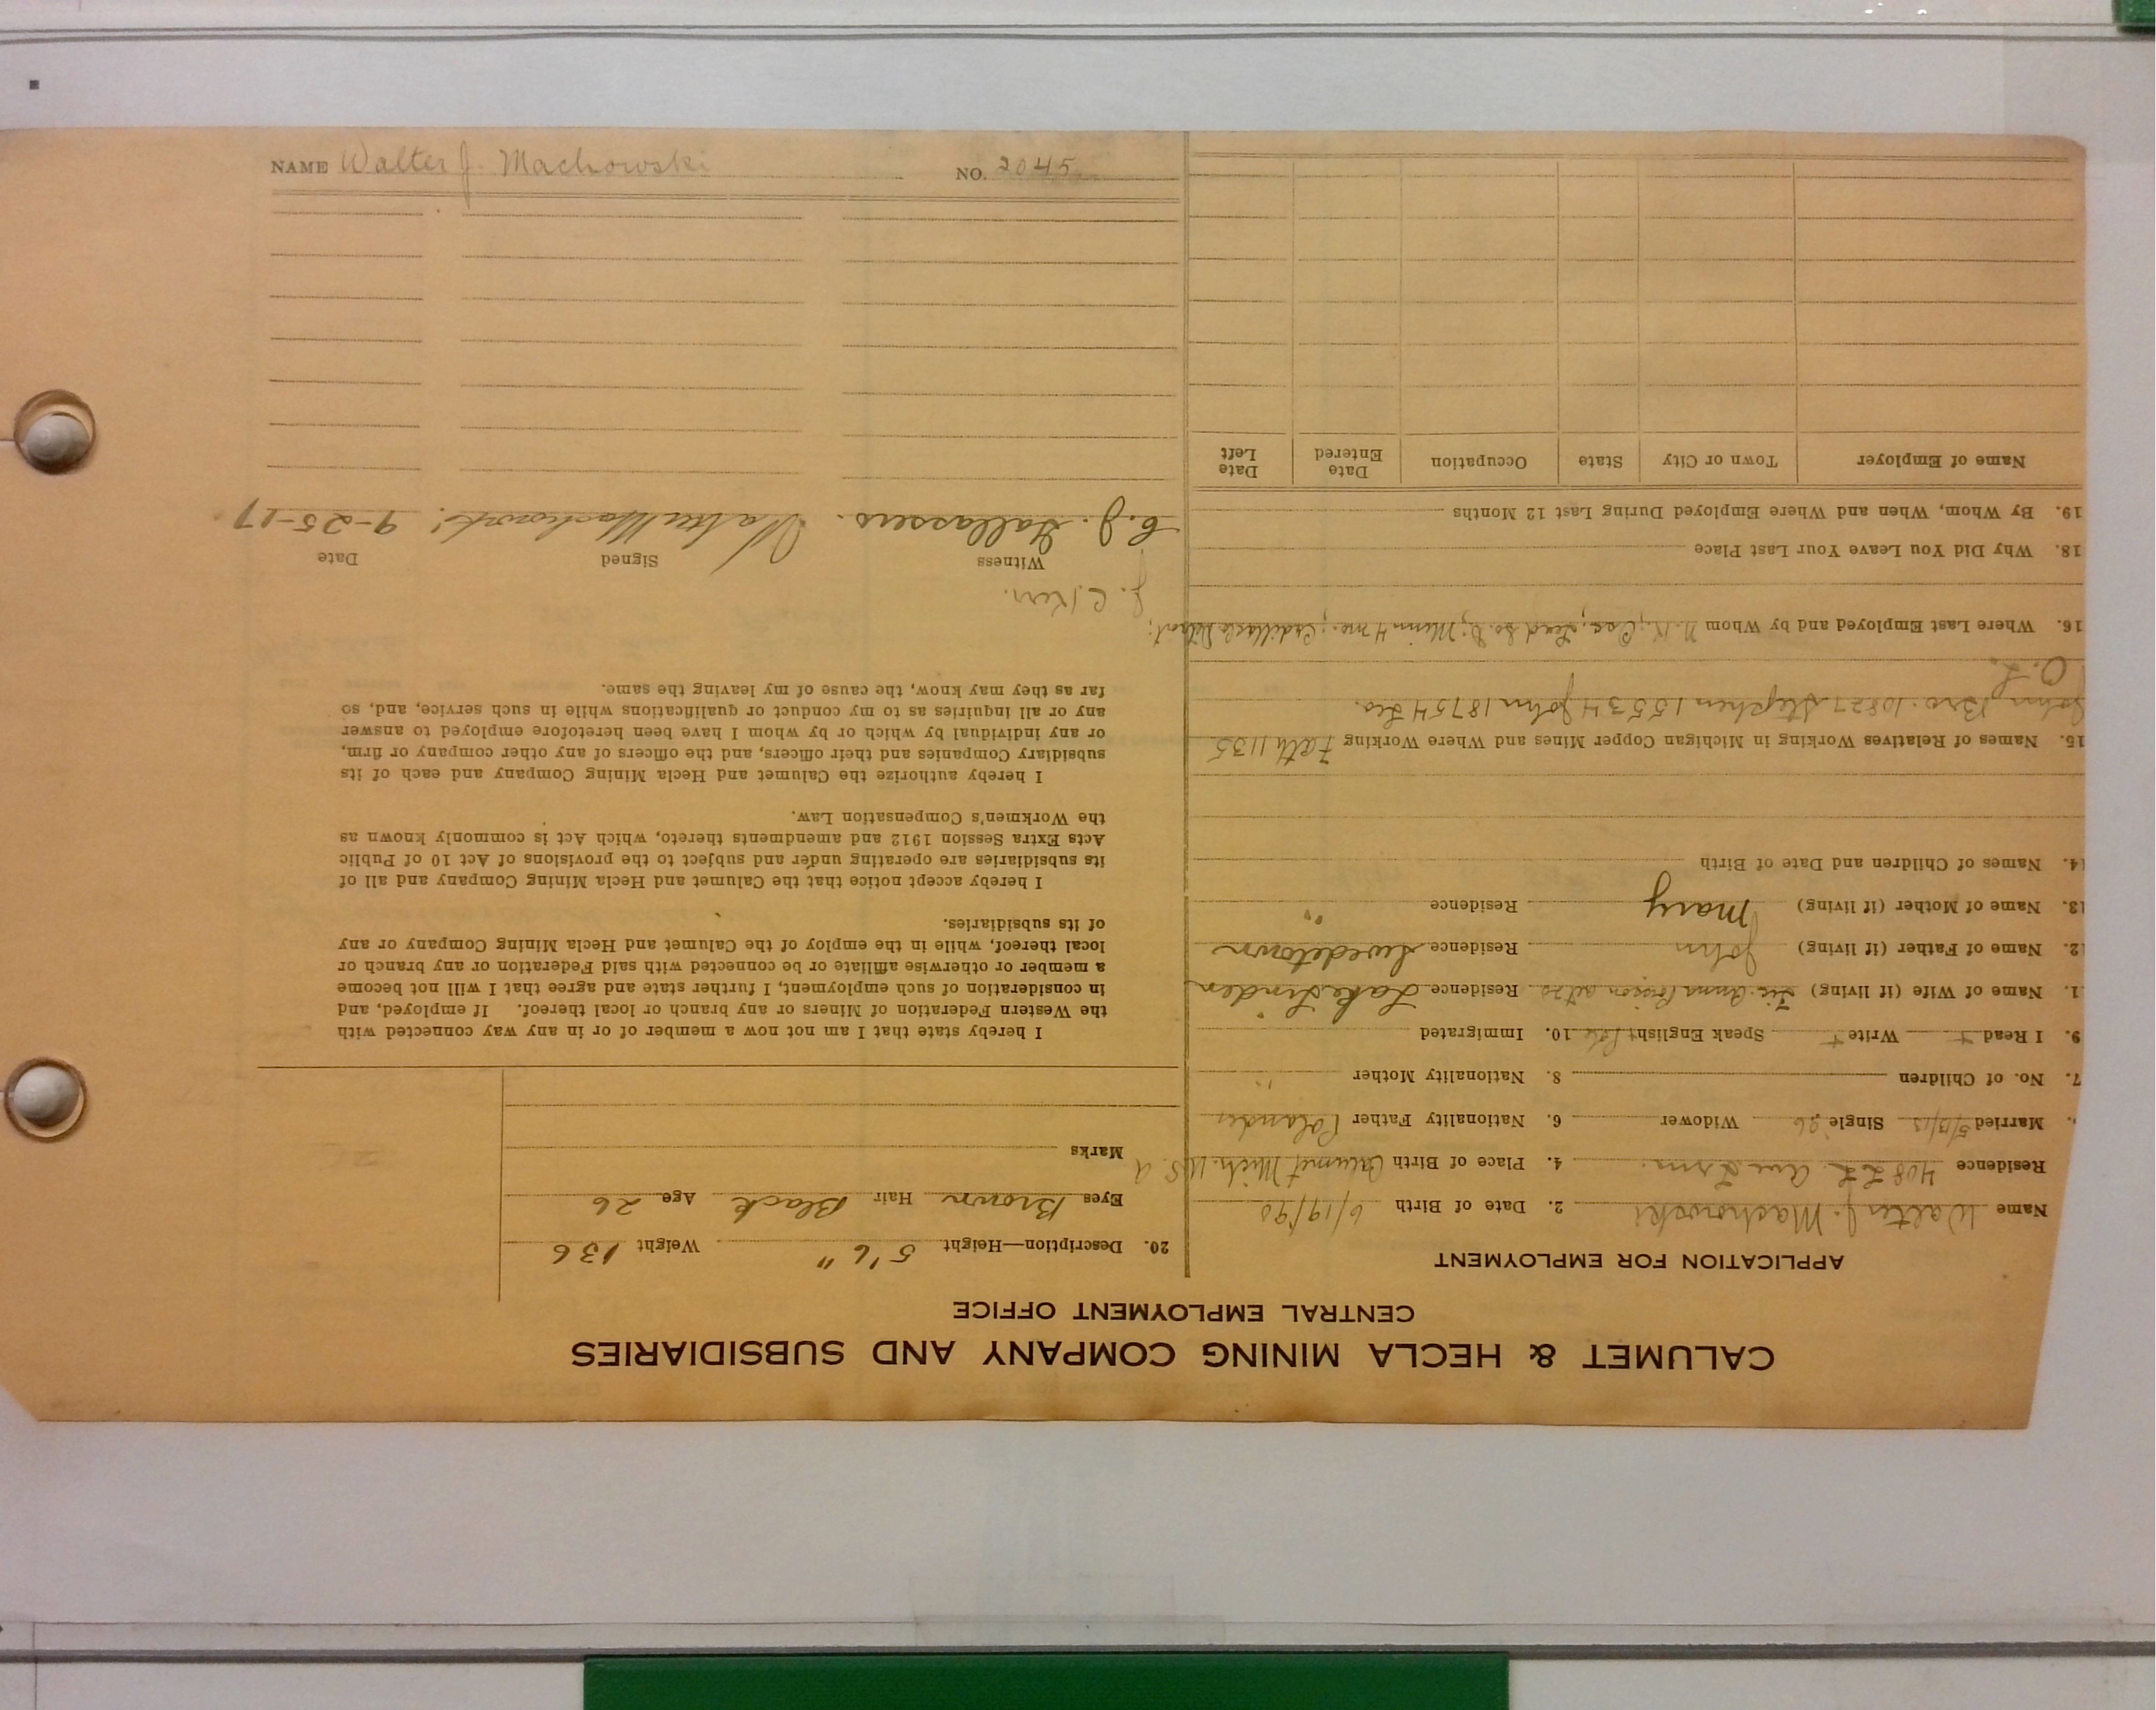 CALUMET & HECLA MINING COMPANY AND SUBSIDIARIES
CENTRAL EMPLOYMENT OFFICE
APPLICATION FOR EMPLOYMENT
Name Walter J. Machowski 2. Date of Birth 6/19/90
Residence 408 L.L. Ave Lrm. 4. Place of Birth Calumet Mich. U.S.A
Married 5/13/15 Single 26 Widower 6. Nationality Father Polander
7. No. of Children 8. Nationality Mother "
9. I Read + Write + Speak English + Pole 10. Immigrated
1. Name of Wife (if living) Anna Residence Lake Linden
2. Name of Father (if living) John Residence Swedetown
13. Name of Mother (if living) Mary Residence "
14. Names of Children and Date of Birth
15. Names of Relatives Working in Michigan Copper Mines and Where Working Fath 1135
John Bro. 10827 Stephen 15534 John 18754 Leo.
O.L.
16. Where Last Employed and by Whom Lead So. D; Minn 4 mo.; Cadillac Detroit;
18. Why Did You Leave Your Last Place
19. By Whom, When and Where Employed During Last 12 Months
Name of Employer Town or City State Occupation Date Entered Date Left
20. Description—Height 5' 6" Weight 136
Eyes Brown Hair Black Age 26
Marks
I hereby state that I am not now a member of or in any way connected with
the Western Federation of Miners or any branch or local thereof. If employed, and
in consideration of such employment, I further state and agree that I will not become
a member or otherwise affiliate or be connected with said Federation or any branch or
local thereof, while in the employ of the Calumet and Hecla Mining Company or any
of its subsidiaries.
I hereby accept notice that the Calumet and Hecla Mining Company and all of
its subsidiaries are operating under and subject to the provisions of Act 10 of Public
Acts Extra Session 1912 and amendments thereto, which Act is commonly known as
the Workmen's Compensation Law.
I hereby authorize the Calumet and Hecla Mining Company and each of its
subsidiary Companies and their officers, and the officers of any other company or firm,
or any individual by which or by whom I have been heretofore employed to answer
any or all inquiries as to my conduct or qualifications while in such service, and, so
far as they may know, the cause of my leaving the same.
J. C. Kerr.
Witness Signed Date
Walter Machowski 9-25-17
NAME Walter J. Machowski NO. 2045